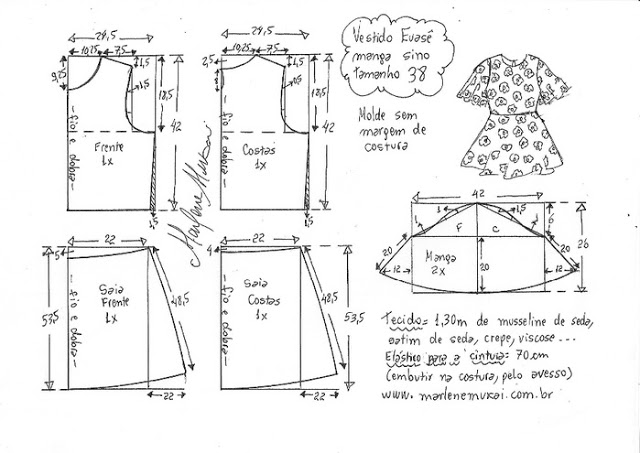 24,5
10,25 7,5
9,25
1,5
1,5
18,5
42
fio e dobra
Frente
1x
1,5
24,5
10,25 7,5
2,5
8
1,5
18,5
42
fio e dobra
Costas
1x
1,5
Marlene Mukai
Vestido Evasê
manga sino
tamanho 38
Molde sem
margem de
costura
22
5
Saia
Frente
1x
fio e dobra
48,5
53,5
22
22
4
Saia
Costas
1x
fio e dobra
48,5
53,5
22
42
1 1,5
6
26
F C
20 20
12 12
Manga
2x
20
Tecido= 1,30m de musseline de seda,
cetim de seda, crepe, viscose...
Elástico para a cintura= 70cm
(embutir na costura, pelo avesso)
www.marlenemukai.com.br